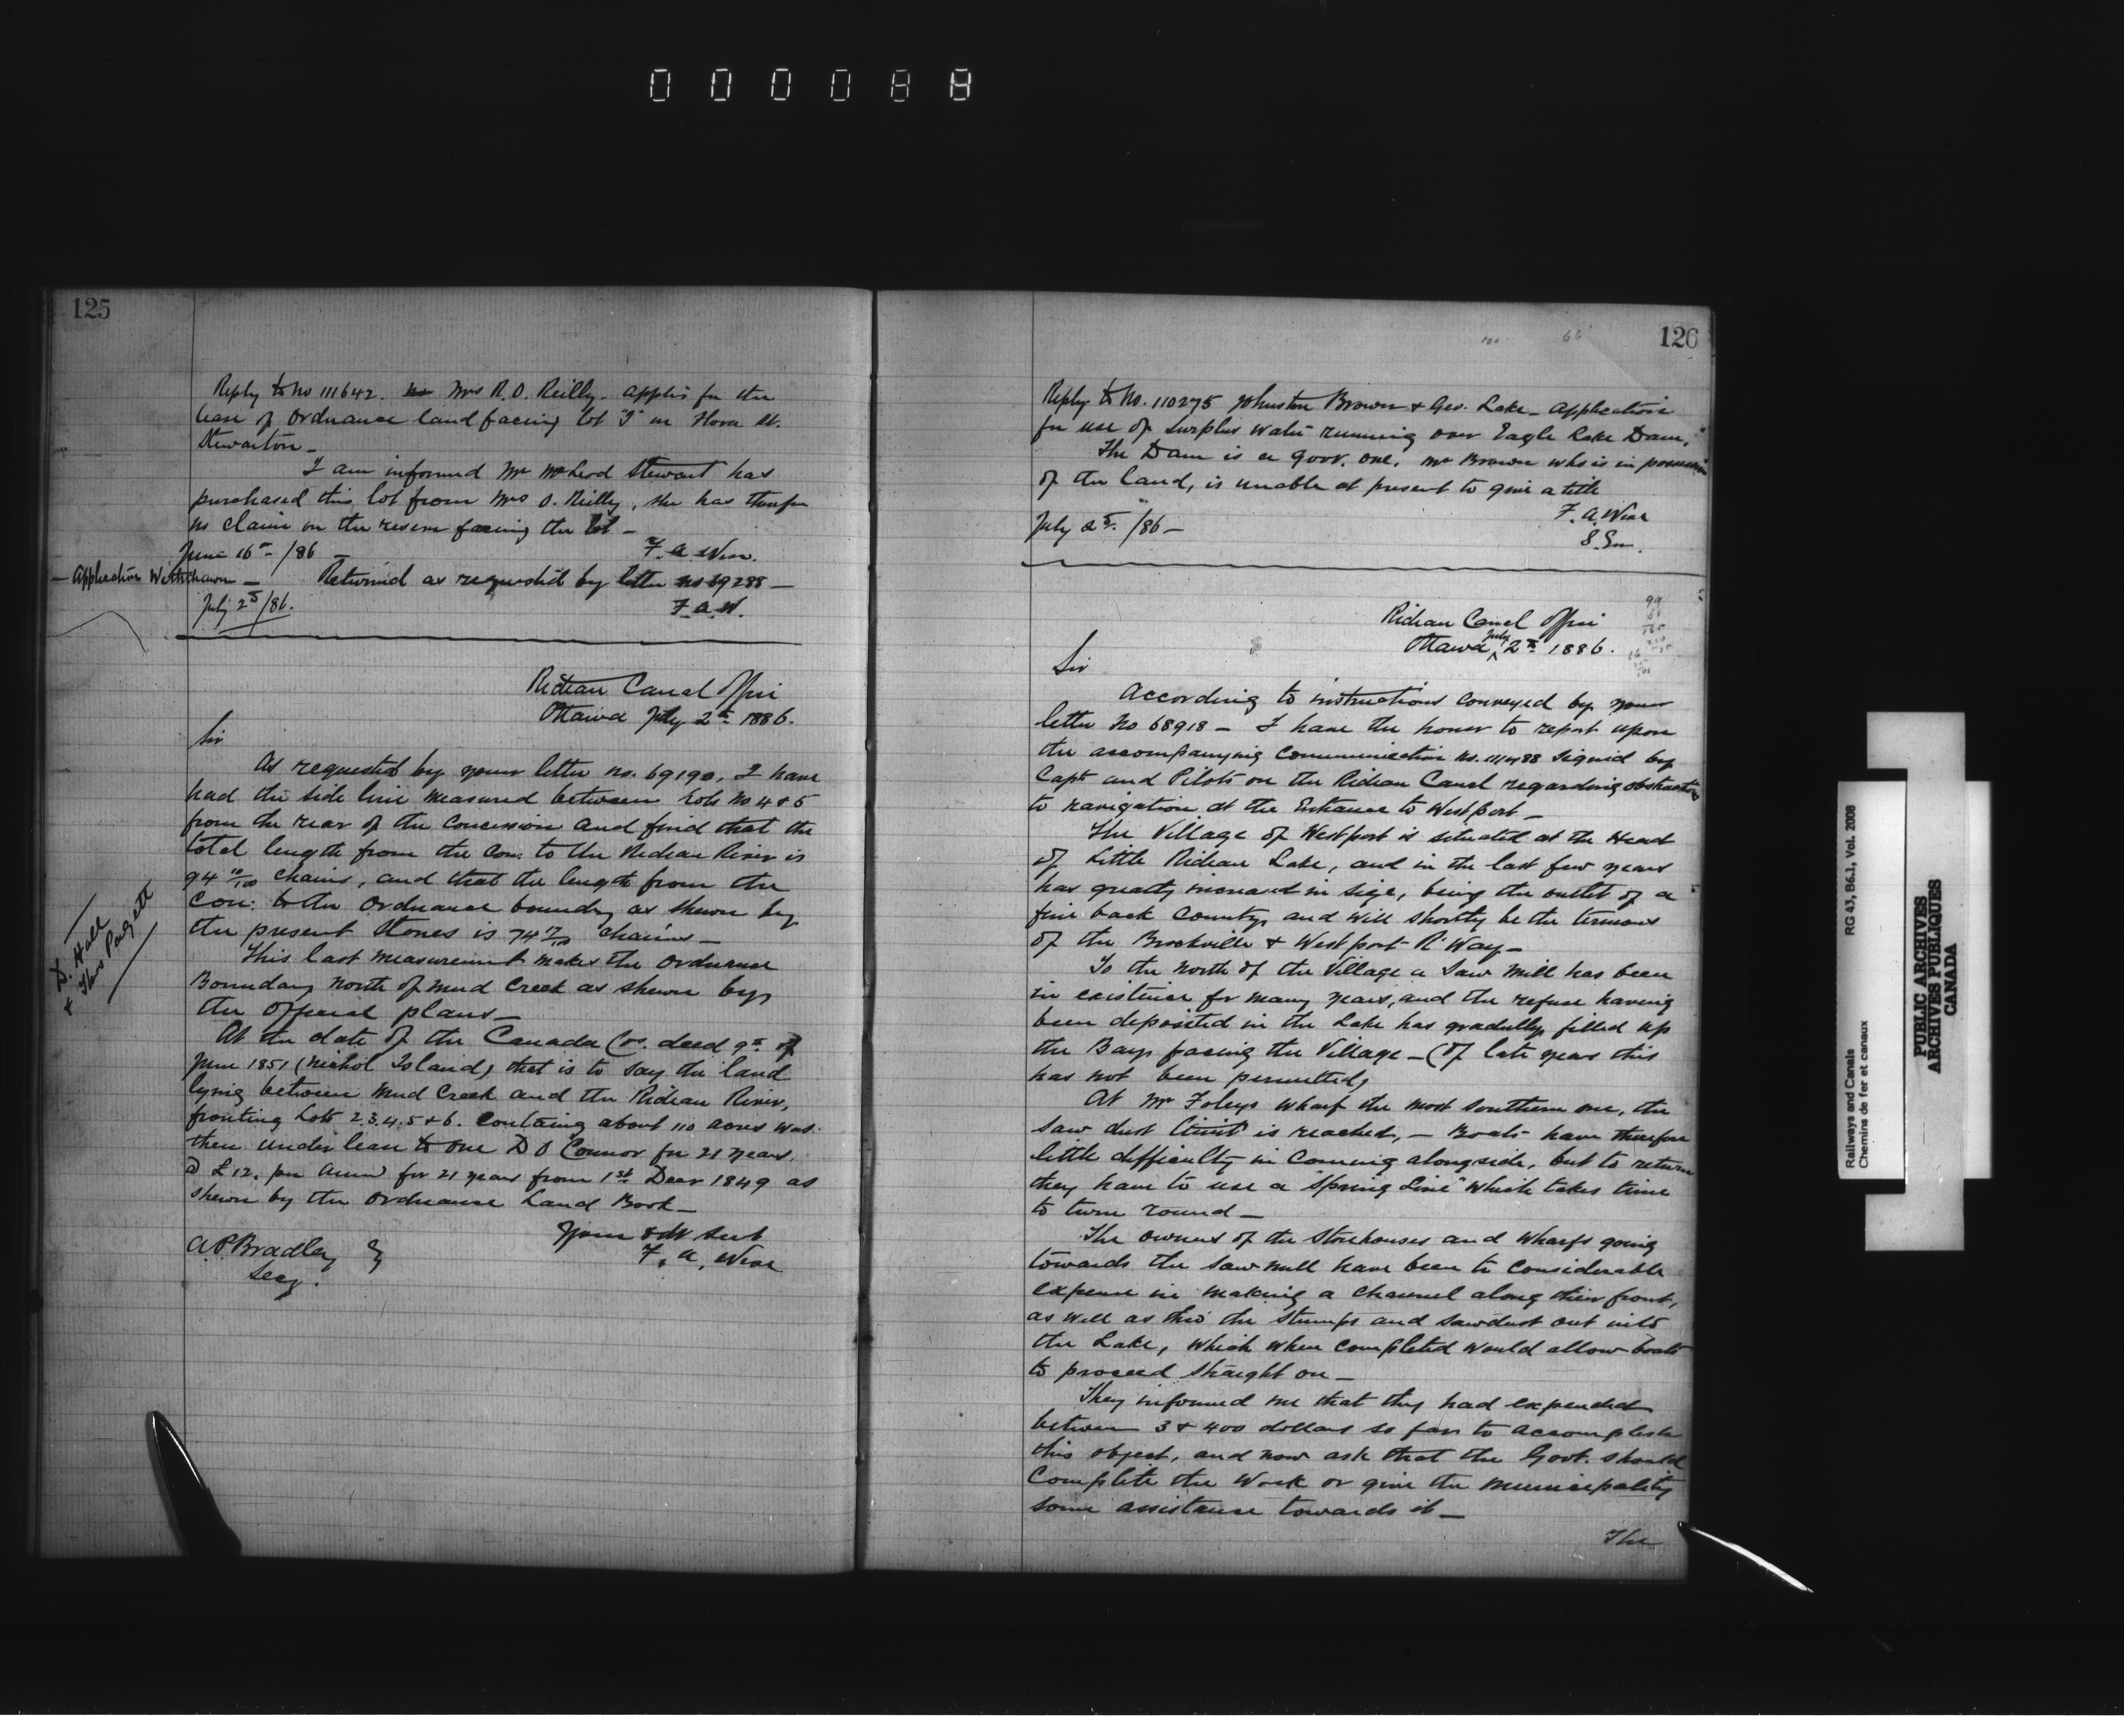 000088
125
Reply to No 111642. Mrs R. O. Reilly. applies for the
lease of Ordnance land facing lot "I" on Flora St.
Stewarton_
I am informed Mr McLeod Stewart has
purchased this lot from Mrs O. Reilly, she has therefore
no claim on the reserve facing the lot _
June 16th /86 _
F. A. Wise.
_ Application Withdrawn _ Returned as requested by letter no 69288 _
July 2nd /86.
F. A. W.
Rideau Canal Office
Ottawa July 2nd 1886.
Sir
As requested by your letter no. 69190, I have
had the side line measured between Lots No 4 & 5
from the rear of the Concession and find that the
total length from the Con: to the Rideau River is
94 10/100 chains, and that the length from the
Con: to the Ordnance boundry as shewn by
the present Stones is 74 chains _
This last measurement makes the Ordnance
Boundary north of Mud Creek as shewn by
the official plans _
D. Hall
& Thos Padgett
At the date of the Canada Co. deed 9th of
June 1851 (Nichol Island) that is to say the land
lying between Mud Creek and the Rideau River,
fronting Lots 2.3.4.5 & 6. containg about 110 acres was
then under lease to one D O'Connor for 21 years,
@ £12. per Anum for 21 years from 1st Decr 1849 as
shewn by the Ordnance Land Book _
Your Obt Svt
F. A. Wise
A. P. Bradley
Secy.
126
Reply to No. 110275 Johnston Brown & Geo. Lake _ Application
for use of surplus water running over Eagle Lake Dam.
The Dam is a Govr. one. Mr Brown who is in possession
of the land, is unable at present to give a title
F. A. Wise
July 2nd /86 _
S. En.
Rideau Canal Office
Ottawa July 2nd 1886.
Sir
According to instructions conveyed by your
letter No 68918 _ I have the honor to report upon
the accompanying Communication signed by
Capts and Pilots on the Rideau Canal regarding obstructions
to navigation at the Entrance to Westport _
The Village of Westport is situated at the Head
of Little Rideau Lake, and in the last few years
has greatly increased in size, being the outlet of a
fine back Country, and will shortly be the terminus
of the Brockville & Westport R'Way _
To the north of the Village a Saw Mill has been
in existence for many years, and the refuse having
been deposited in the Lake has gradually filled up
the Bay facing the Village _ (Of late years this
has not been permitted)
At Mr Foleys wharf the most southern one, the
saw dust limit is reached, _ Boats have therefore
little difficulty in Coming alongside, but to return
they have to use a "Spring Line" which takes time
to turn round _
The owners of the Storehouses and Wharfs going
towards the saw mill have been to considerable
expense in making a channel along their front,
as well as thro' the stumps and sawdust out into
the Lake, which when completed would allow boats
to proceed straight on _
They informed me that they had expended
between 3 & 400 dollars so far to accomplish
this object, and now ask that the Govt. should
Complete the Work or give the Municipality
some assistance towards it _
The
Railways and Canals
Chemins de fer et canaux
RG 43, B6.1, Vol. 2008
PUBLIC ARCHIVES
ARCHIVES PUBLIQUES
CANADA